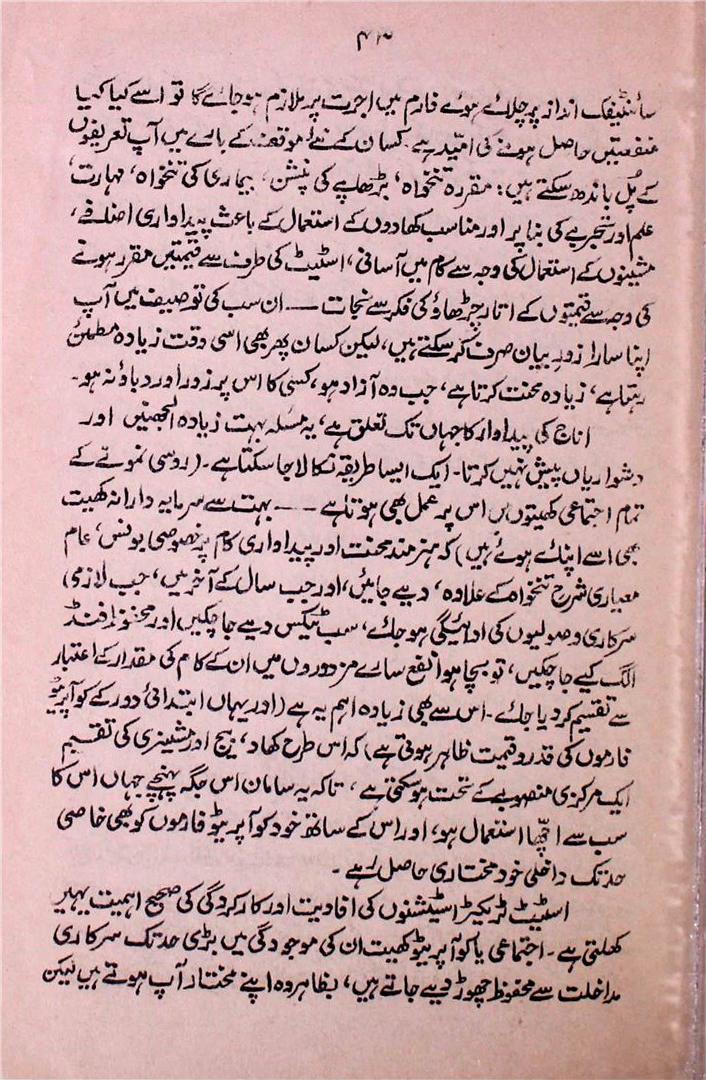 ۴۳
سائنٹیفک انداز پر چلائے ہوئے فارم میں اجرت پر ملازم ہو جائے گا تو اسے کیا کیا
منفعتیں حاصل ہونے کی امید ہے۔ کسان کے نئے موقف کے بارے میں آپ تعریفوں
کے پُل باندھ سکتے ہیں: مقررہ تنخواہ، بڑھاپے کی پنشن، بیماری کی تنخواہ، مہارت،
علم اور تجربے کی بنا پر اور مناسب کھادوں کے استعمال کے باعث پیداواری اضافے،
مشینوں کے استعمال کی وجہ سے کام میں آسانی، اسٹیٹ کی طرف سے قیمتیں مقرر ہونے
کی وجہ سے قیمتوں کے اتار چڑھاؤ کی فکر سے نجات ــــ ان سب کی توصیف میں آپ
اپنا سارا زورِ بیان صرف کر سکتے ہیں، لیکن کسان پھر بھی اسی وقت زیادہ مطمئن
رہتا ہے، زیادہ محنت کرتا ہے، جب وہ آزاد ہو، کسی کا اس پر زور اور دباؤ نہ ہو۔
اناج کی پیداوار کا جہاں تک تعلق ہے، یہ مسئلہ بہت زیادہ الجھنیں اور
دشواریاں پیش نہیں کرتا۔ ایک ایسا طریقہ نکالا جا سکتا ہے۔ (روسی نمونے کے
تمام اجتماعی کھیتوں میں اس پر عمل بھی ہوتا ہے ــــ بہت سے سرمایہ دارانہ کھیت
بھی اسے اپنائے ہوئے ہیں) کہ ہنر مند محنت اور پیداواری کام پر خصوصی بونس، عام
معیاری شرح تنخواہ کے علاوہ، دیے جائیں، اور جب سال کے آخر میں، جب لازمی
سرکاری وصولیوں کی ادائیگی ہو جائے، سب ٹیکس دیے جا چکیں اور محفوظ فنڈ
الگ کیے جا چکیں، تو بچا ہوا نفع سارے مزدوروں میں ان کے کام کی مقدار کے اعتبار
سے تقسیم کر دیا جائے۔ اس سے بھی زیادہ اہم یہ ہے (اور یہاں ابتدائی دور کے کوآپریٹو
فارموں کی قدر و قیمت ظاہر ہوتی ہے) کہ اس طرح کھاد، بیج اور مشینری کی تقسیم
ایک مرکزی منصوبے کے تحت ہو سکتی ہے، تاکہ یہ سامان اس جگہ پہنچے جہاں اس کا
سب سے اچھا استعمال ہو، اور اس کے ساتھ خود کوآپریٹو فارموں کو بھی خاصی
حد تک داخلی خود مختاری حاصل رہے۔
اسٹیٹ ٹریکٹر اسٹیشنوں کی افادیت اور کارکردگی کی صحیح اہمیت یہیں
کھلتی ہے۔ اجتماعی یا کوآپریٹو کھیت ان کی موجودگی میں بڑی حد تک سرکاری
مداخلت سے محفوظ چھوڑ دیے جاتے ہیں، بظاہر وہ اپنے مختار آپ ہوتے ہیں لیکن